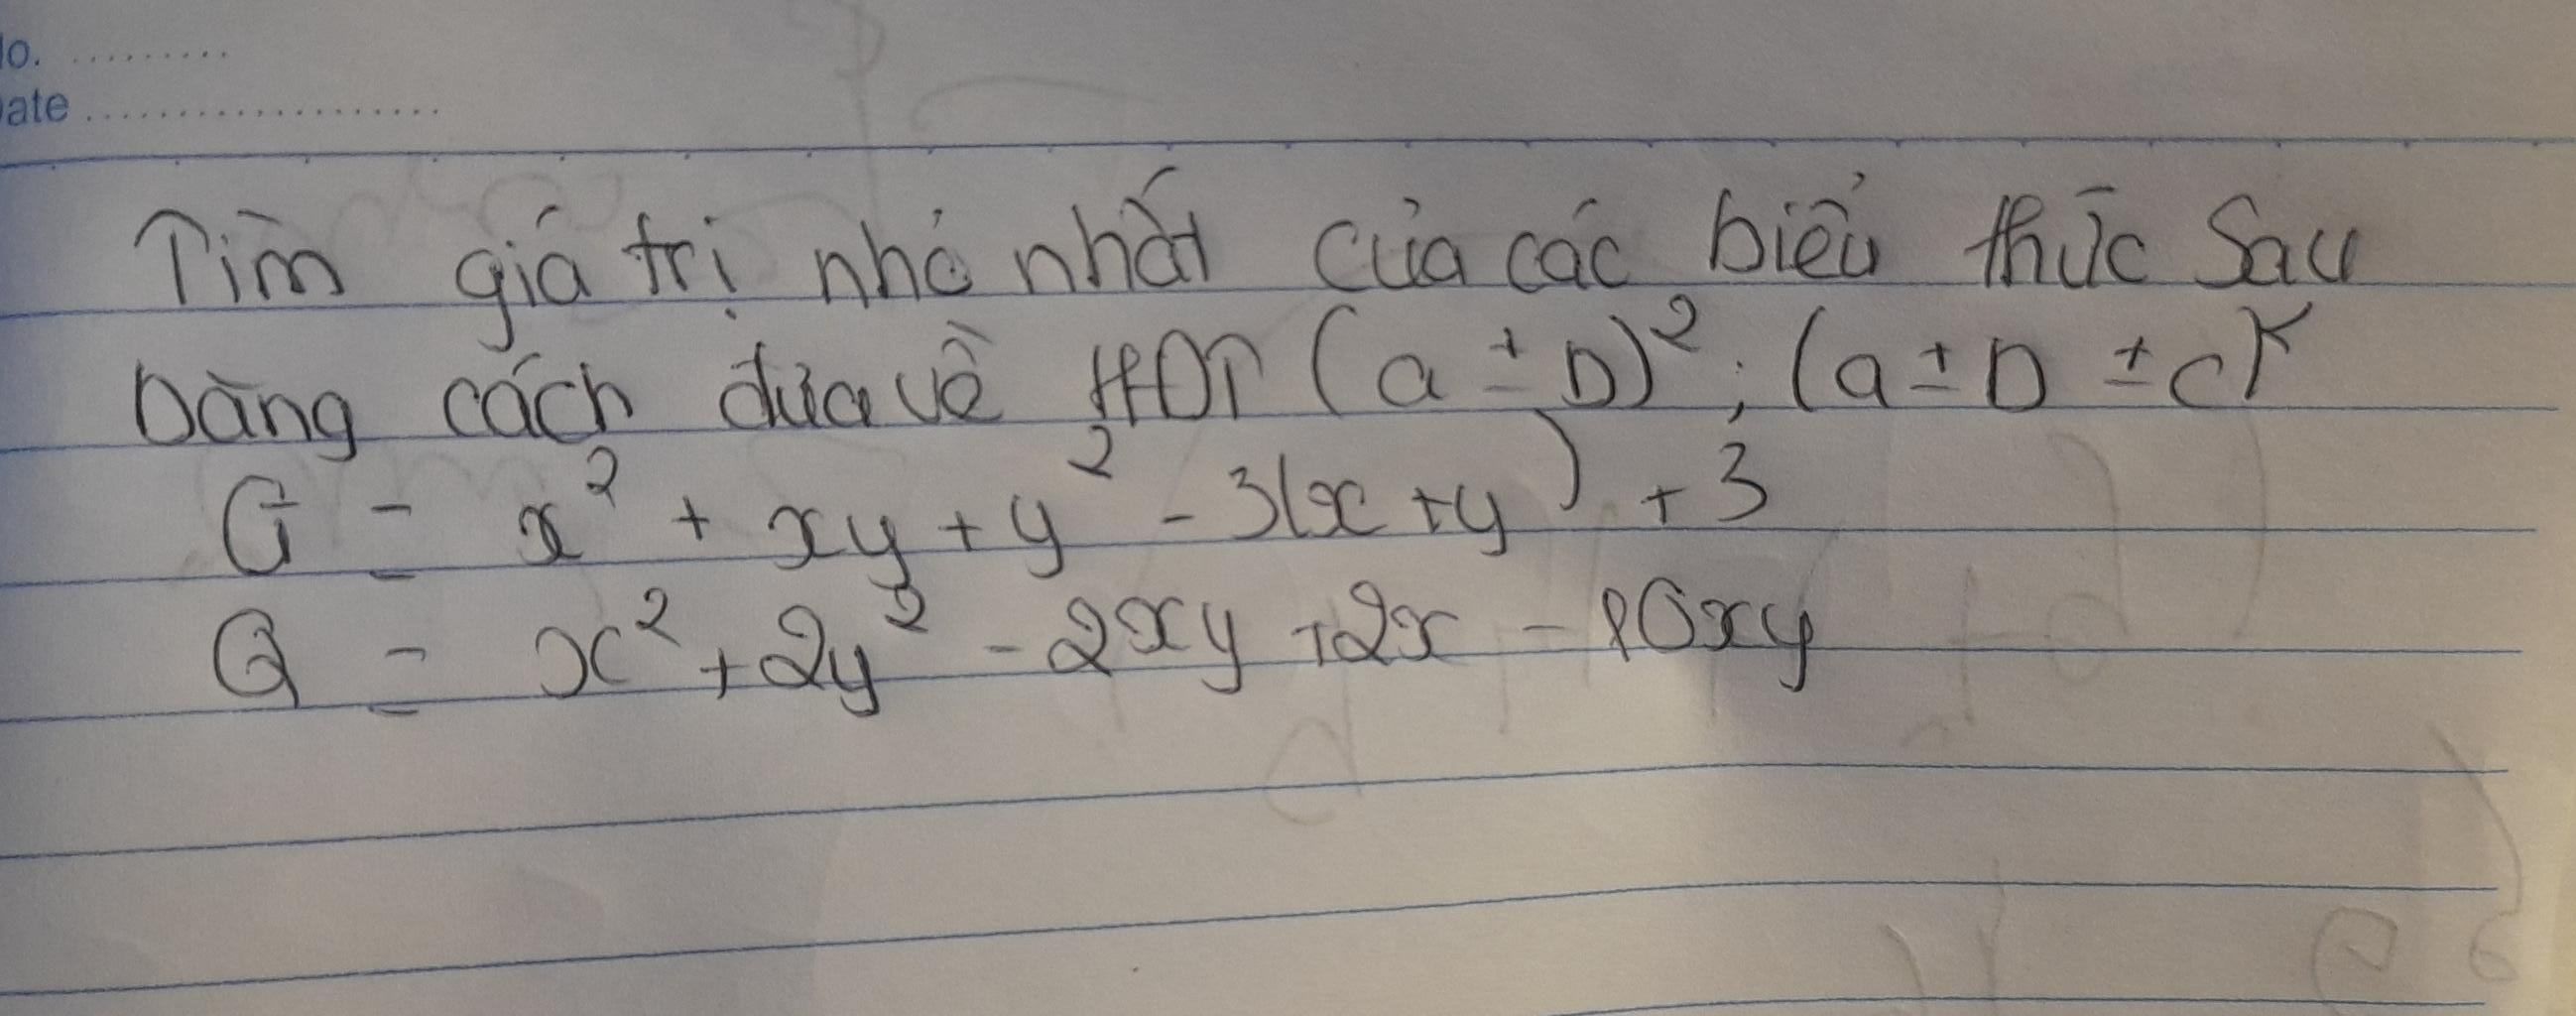 No. ..........
Date ....................
Tìm giá trị nhỏ nhất của các biểu thức sau
bằng cách đưa về HĐT (a ± b)²; (a ± b ± c)²
G = x² + xy + y² - 3(x + y) + 3
Q = x² + 2y² - 2xy + 2x - 10xy